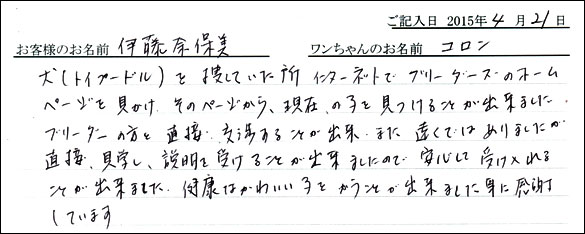 ご記入日 2015年 4 月 21 日
お客様のお名前 伊藤奈保美 ワンちゃんのお名前 コロン
犬(トイプードル)を捜していた所 インターネットで ブリーダーズのホーム
ページを見かけ そのページから、現在、の子を見つけることが出来ました.
ブリーダーの方と 直接、交渉することが出来、また 遠くではありましたが
直接、見学し、説明を受けることが出来ましたので 安心して 受け入れる
ことが出来ました. 健康なかわいい子をかうことが出来ました事に感謝
しています